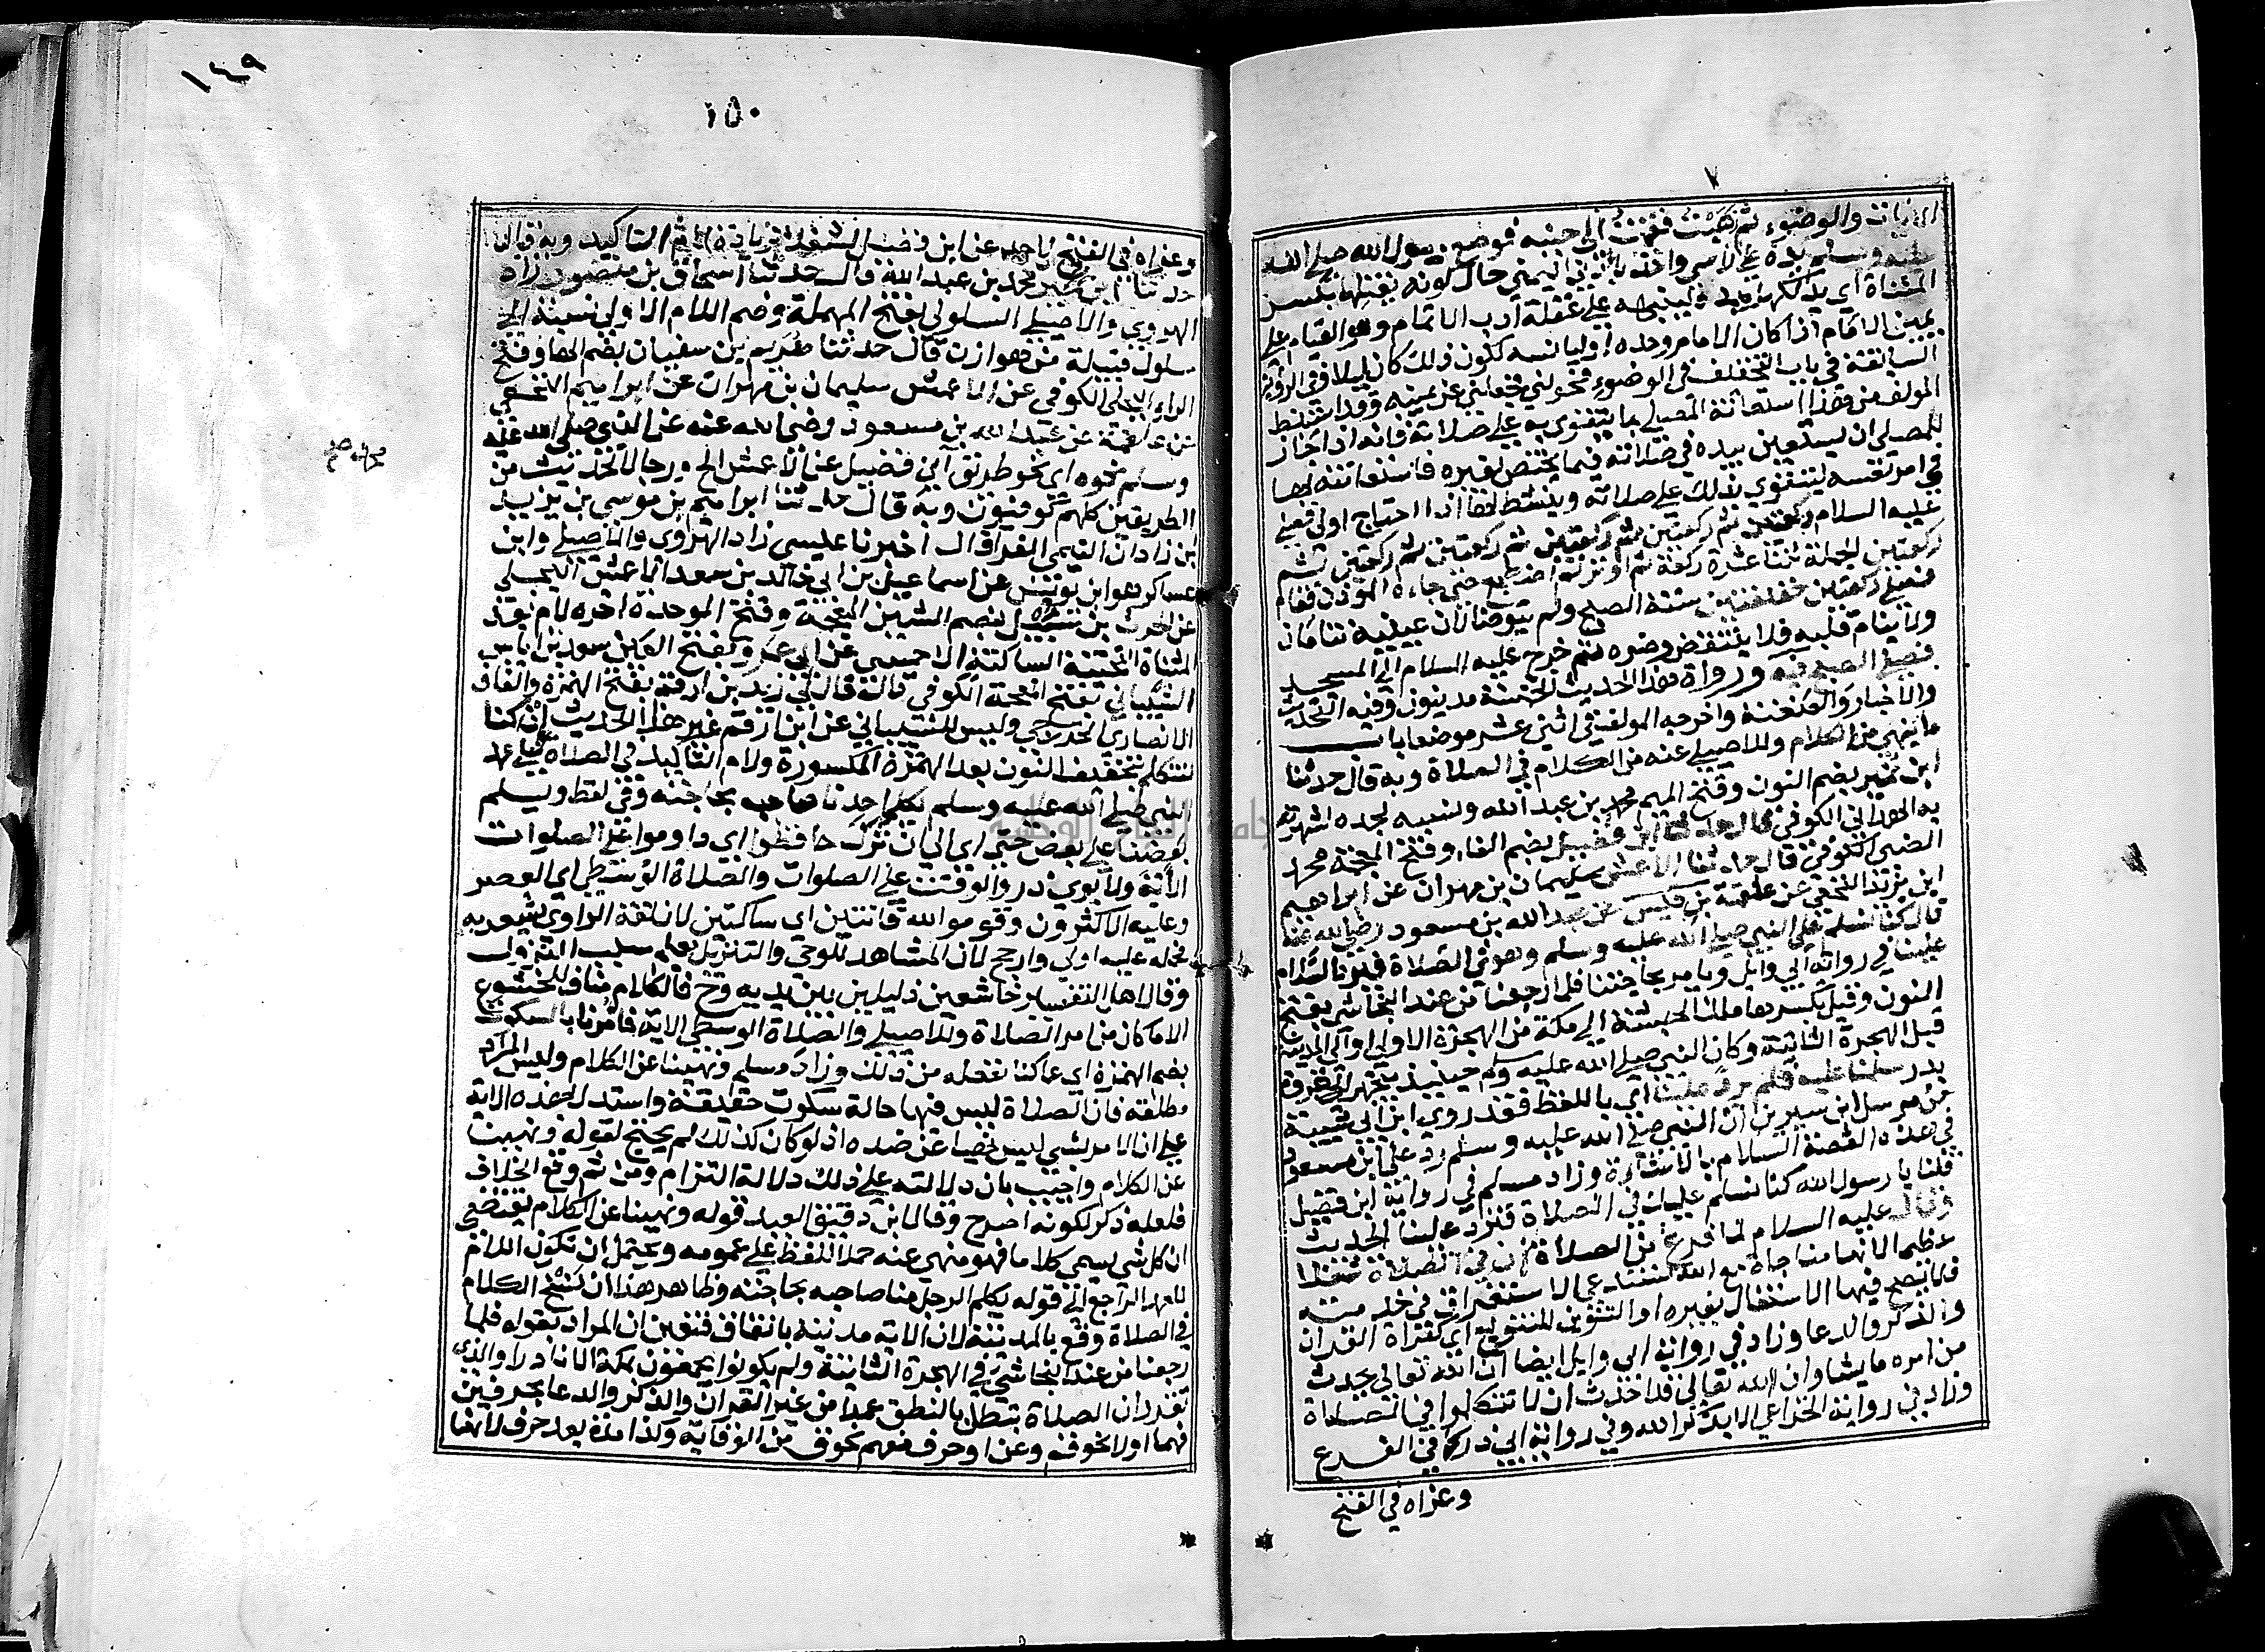 ٧
والوضوء ثم ذهبت فقمت الى جنبه فوضع رسول الله صلى الله
عليه وسلم يده على راسي واخذ باذني اليمنى حال كونه يفتلها بكسر
المثناة اي يدلكها لينبهه على غفلة ادب الائتمام وهو القيام على
يمين الامام اذا كان الامام وحده او ليانسه لكون ذلك كان ليلا وفي الرواية
السابقة في باب التخفيف في الوضوء فحولني فجعلني عن يمينه وقد استنبط
المولف من هذا استعانة المصلي بما يتقوى به على صلاته فانه اذا جاز
للمصلي ان يستعين بيده في صلاته فيما يختص بغيره فاستعانته بها
في امر نفسه ليتقوى بذلك على صلاته وينشط لها اذا احتاج اولى فصلى
عليه السلام ركعتين ثم ركعتين ثم ركعتين ثم ركعتين ثم ركعتين ثم
ركعتين الجملة ثنتا عشرة ركعة ثم اوتر ثم اضطجع حتى جاءه الموذن فقام
فصلى ركعتين خفيفتين سنة الصبح ولم يتوضا لان عينيه تنامان
ولا ينام قلبه فلا ينتقض وضوه ثم خرج عليه السلام الى المسجد
فصلى الصبح فيه ورواة هذا الحديث الخمسة مدنيون وفيه التحديث
والاخبار والعنعنة واخرجه المولف في اثني عشر موضعا باب
ما ينهى من الكلام وللاصيلي عنه من الكلام في الصلاة وبه قال حدثنا
ابن نمير بضم النون وفتح الميم محمد بن عبد الله ونسبه لجده لشهرته
به الهمداني الكوفي قال حدثنا ابن فضيل بضم الفاء وفتح المعجمة محمد
الضبي الكوفي قال حدثنا الاعمش سليمان بن مهران عن ابراهيم
ابن يزيد النخعي عن علقمة بن قيس عن عبد الله بن مسعود رضي الله عنه
قال كنا نسلم على النبي صلى الله عليه وسلم وهو في الصلاة فيرد السلام
علينا في رواية ابي وايل ويامر بحاجتنا فلما رجعنا من عند النجاشي بفتح
النون وقيل بكسرها ملك الحبشة الى مكة من الهجرة الاولى او الى المدينة
قبل الهجرة الثانية وكان النبي صلى الله عليه وسلم حينئذ يتجهز الى غزوة
بدر سلمنا عليه فلم يرد علينا اي باللفظ فقد روى ابن ابي شيبة
من مرسل ابن سيرين ان النبي صلى الله عليه وسلم رد على ابن مسعود
في هذه القصة السلام بالاشارة وزاد مسلم في رواية ابن فضيل
قلنا يا رسول الله كنا نسلم عليك في الصلاة فترد علينا الحديث
وقال عليه السلام لما فرغ من الصلاة ان في الصلاة شغلا
عظيما لانها مناجاة مع الله تستدعي الاستغراق في خدمته
فلا يصح فيها الاشتغال بغيره او التنوين للتنويع اي كقراة القران
والذكر والدعا وزاد في رواية ابي وايل ايضا ان الله تعالى يحدث
من امره ما يشا وان الله تعالى قد احدث ان لا تتكلموا في الصلاة
وزاد في رواية الخزاعي الا بذكر الله وفي رواية ابي ذر كما في الفرع
وعزاه في الفتح
١٤٩
١٥٠
وعزاه في الفتح لاحمد عن ابن فضيل لشغلا بزيادة لام التاكيد وبه قال
حدثنا ابن نمير محمد بن عبد الله قال حدثنا اسحاق بن منصور زاد
الهروي والاصيلي السلولي بفتح المهملة وضم اللام الاولى نسبة الى
سلول قبيلة من هوازن قال حدثنا هريم بن سفيان بضم الها وفتح
الراء البجلي الكوفي عن الاعمش سليمان بن مهران عن ابراهيم النخعي
عن علقمة عن عبد الله بن مسعود رضي الله عنه عن النبي صلى الله عليه
وسلم نحوه اي نحو طريق ابن فضيل عن الاعمش الخ ورجال الحديث من
الطريقين كلهم كوفيون وبه قال حدثنا ابراهيم بن موسى بن يزيد
ابن زاذان التيمي الفرا قال اخبرنا عيسى زاد الهروي والاصيلي وابن
عساكر هو ابن يونس عن اسماعيل بن ابي خالد بن سعد الاحمسي البجلي
عن الحرث بن شبيل بضم الشين المعجمة وفتح الموحدة اخره لام بعد
المثناة التحتية الساكنة الاحمسي عن ابي عمرو بفتح العين سعد بن اياس
الشيباني بفتح المعجمة الكوفي قال قال لي زيد بن ارقم بفتح الهمزة والقاف
الانصاري الخزرجي وليس للشيباني عن ابن ارقم غير هذا الحديث ان كنا
لنتكلم بتخفيف النون بعد الهمزة المكسورة ولام التاكيد في الصلاة على عهد
النبي صلى الله عليه وسلم يكلم احدنا صاحبه بحاجته وفي لفظ ويسلم
بعضنا على بعض حتى اي الى ان نزلت حافظوا اي داوموا على الصلوات
الاية ولابوي ذر والوقت على الصلوات والصلاة الوسطى اي العصر
وعليه الاكثرون وقوموا لله قانتين اي ساكتين لان لفظ الراوي يشعر به
فحمله عليه اولى وارجح لان المشاهد للوحي والتنزيل يعلم سبب النزول
وقال اهل التفسير خاشعين ذليلين بين يديه وح فالكلام مناف للخشوع
الا ما كان من امر الصلاة وللاصيلي والصلاة الوسطى الاية فامرنا بالسكوت
بضم الهمزة اي عما كنا نفعله من ذلك وزاد مسلم ونهينا عن الكلام وليس المراد
مطلقه فان الصلاة ليس فيها حالة سكوت حقيقة واستدل بهذه الاية
على ان الامر بشي ليس نهيا عن ضده اذ لو كان كذلك لم يحتج لقوله ونهينا
عن الكلام واجيب بان دلالته على ذلك دلالة التزام ومن ثم وقع الخلاف
فلعله ذكر لكونه اصرح وقال ابن دقيق العيد قوله ونهينا عن الكلام يقتضي
ان كل شي يسمى كلاما فهو منهي عنه حملا للفظ على عمومه ويحتمل ان تكون اللام
للعهد الراجع الى قوله يكلم الرجل منا صاحبه بحاجته وظاهر هذا ان نسخ الكلام
في الصلاة وقع بالمدينة لان الاية مدنية باتفاق فتعين ان المراد بقوله فلما
رجعنا من عند النجاشي في الهجرة الثانية ولم يكونوا يجمعون بمكة الا نادرا والذي
تقرر ان الصلاة تبطل بالنطق عمدا من غير القران والذكر والدعا بحرفين
فهما اولا نحو قم وعن او حرف مفهم نحو ق من الوقاية وكذا مدة بعد حرف لانها